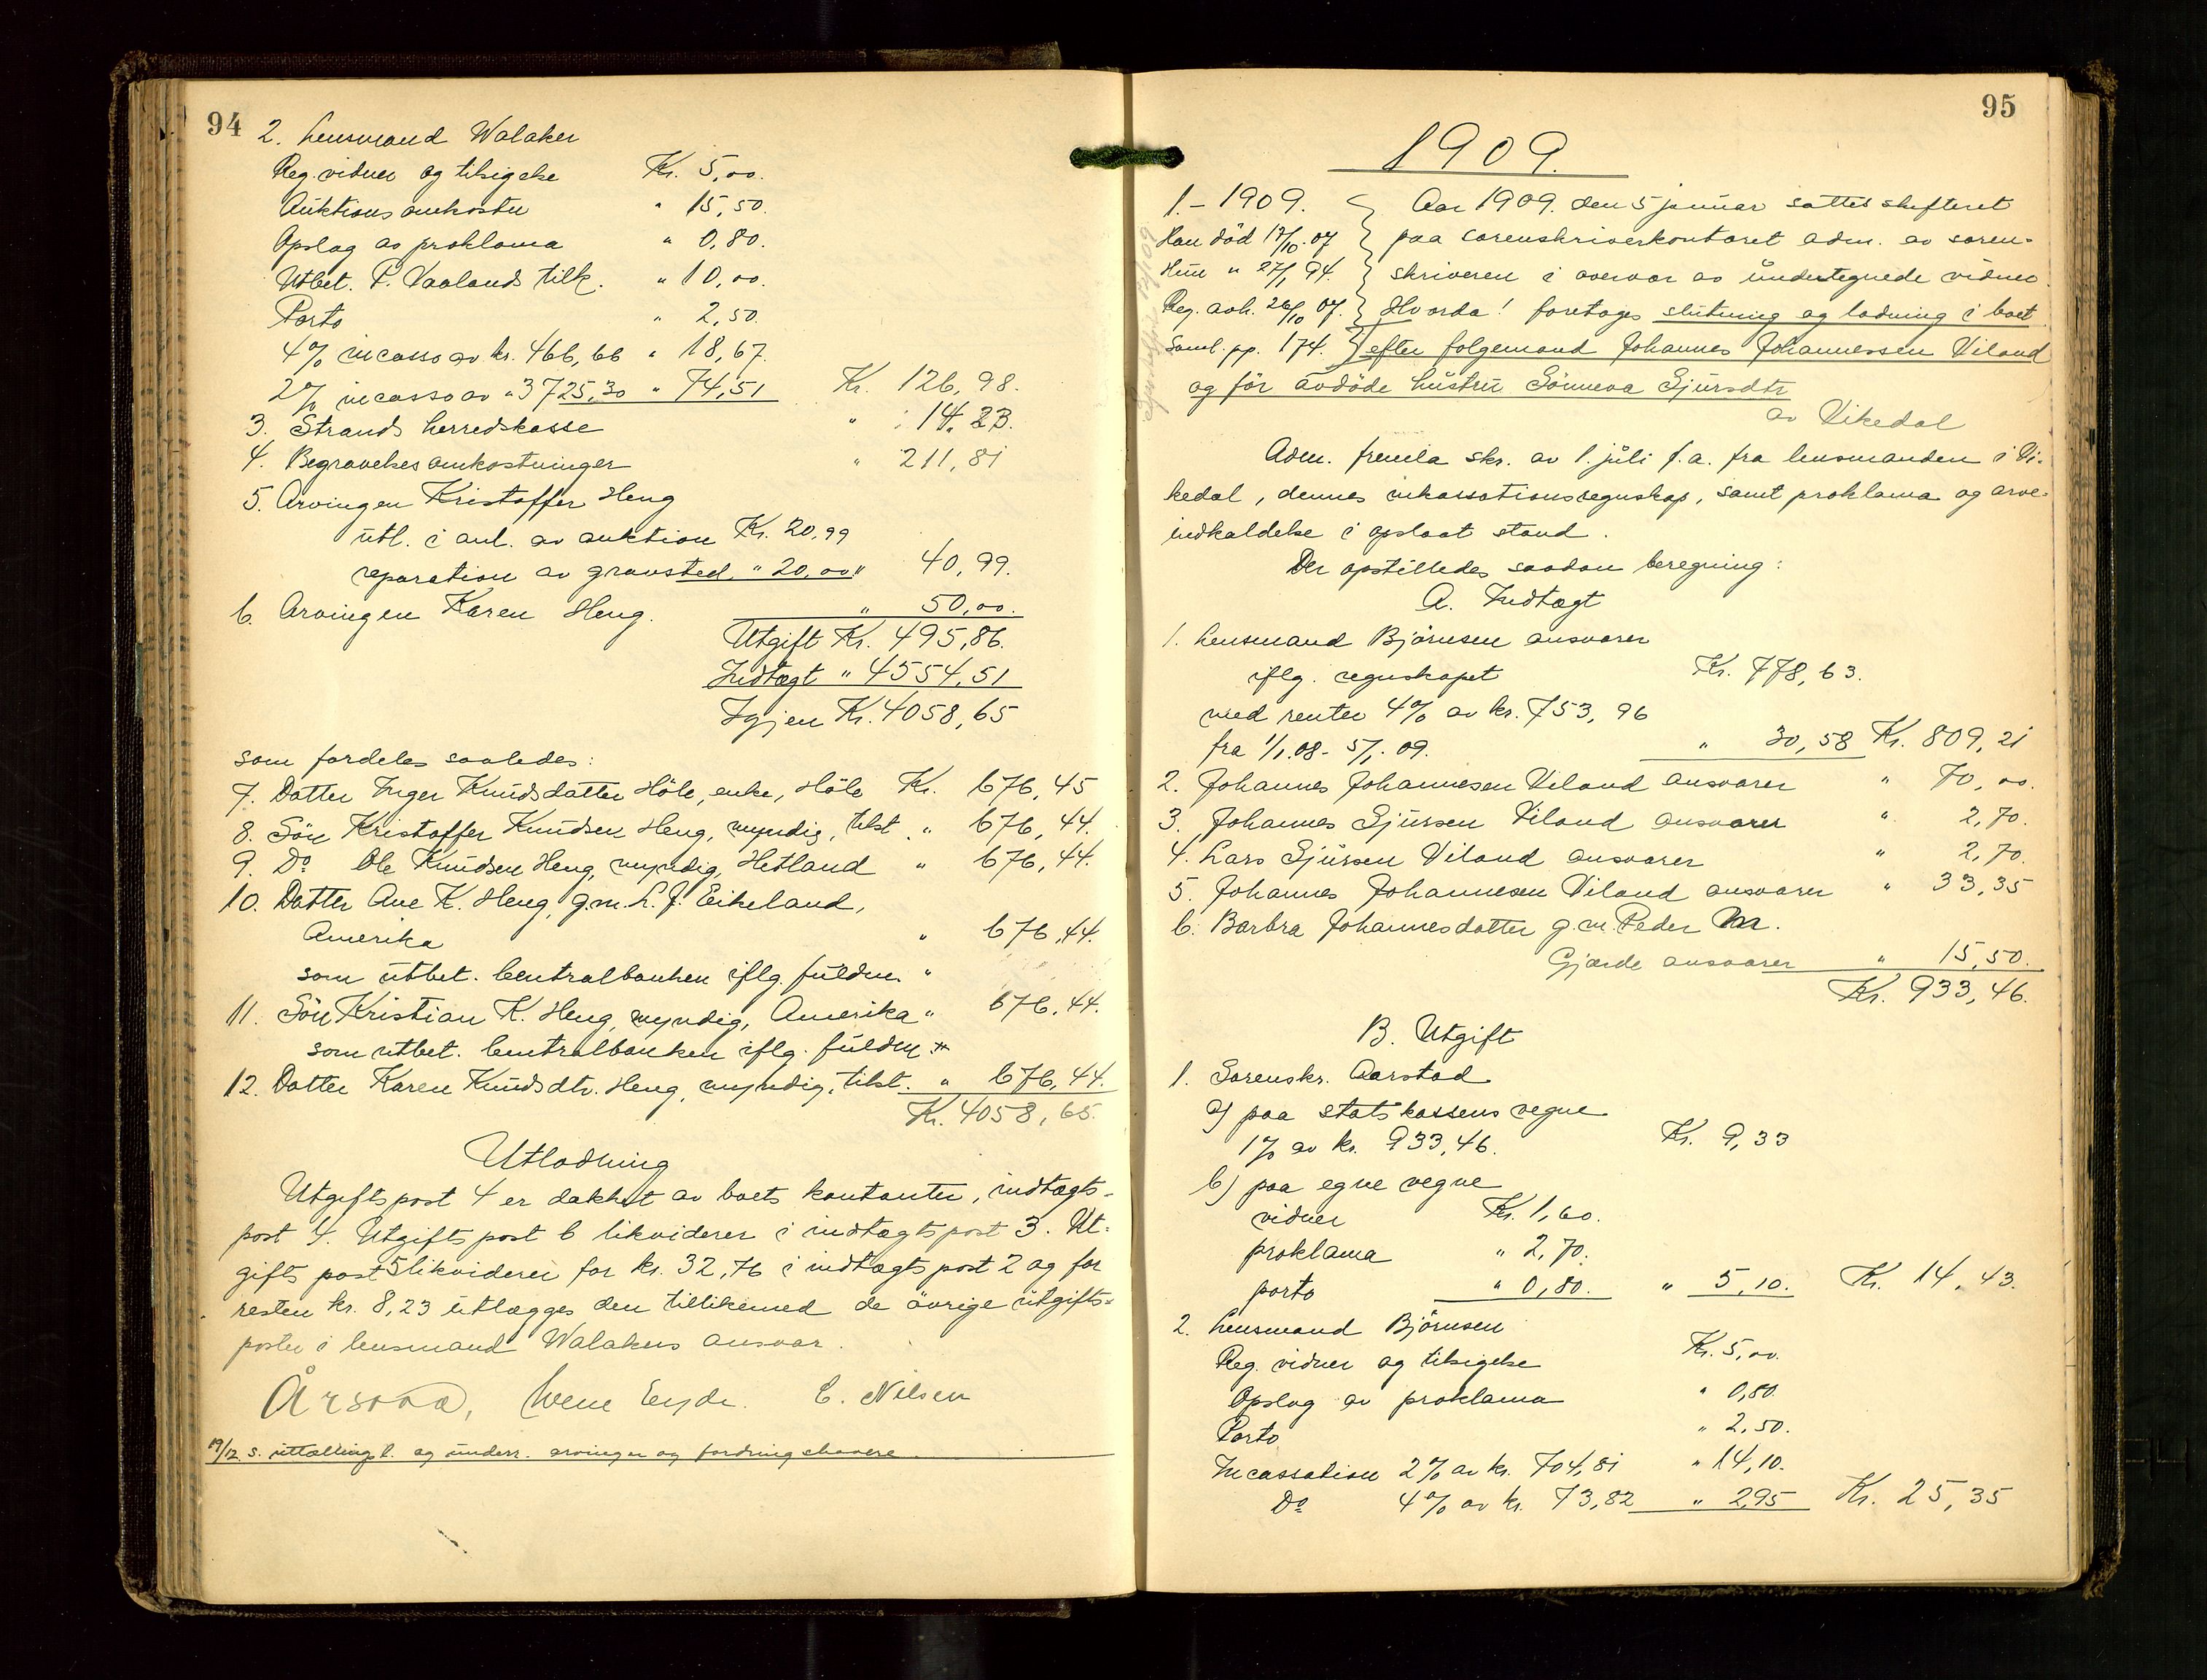 94
2. Lensmand Walaker
Reg. vidner og tilsigelse Kr. 5,00.
Auktionsomkostn " 15,50.
Opslag av proklama " 0,80.
Utbet. P. Vaalands tilk. " 10,00.
Porto " 2,50.
4% incasso av kr. 466,66 " 18,67.
2% incasso av " 3725,30 " 74,51 Kr. 126,98.
3. Strands herredskasse " 14,23.
4. Begravelsesomkostninger " 211,81
5. Arvingen Kristoffer Heng
utl. i anl. av auktion Kr. 20,99
reparation av gravsted " 20,00 " 40,99.
6. Arvingen Karen Heng. " 50,00.
Utgift Kr. 495,86.
Indtægt " 4554,51
Igjen Kr. 4058,65
som fordeles saaledes:
7. Datter Inger Knudsdatter Höle, enke, Höle Kr. 676,45
8. Sön Kristoffer Knudsen Heng, myndig, tilst. " 676,44.
9. Do Ole Knudsen Heng, myndig, Hetland " 676,44.
10. Datter Ane K. Heng, g.m. L. J. Eikeland,
Amerika " 676,44.
som utbet. Centralbanken iflg. fuldm. "
11. Sön Kristian K. Heng, myndig, Amerika " 676,44.
som utbet. Centralbanken iflg. fuldm.
12. Datter Karen Knudsdtr. Heng, myndig, tilst. " 676,44.
Kr. 4058,65.
Utlodning
Utgiftspost 4 er dækket av boets kontanter, indtægts-
post 4. Utgiftspost 6 likviderer i indtægtspost 3. Ut-
giftspost 5 likviderer for kr. 32,76 i indtægtspost 2 og for
resten kr. 8,23 utlægges den tillikemed de övrige utgifts-
poster i lensmand Walakers ansvar.
Årstad, Eeyde. C. Nilsen
19/12 s. uttællingsl. og underr. arvinger og fordringshavere.
95
1909.
1.- 1909. Aar 1909. den 5 januar sattes skifteret
Han död 17/10.07 paa sorenskriverkontoret adm. av soren-
Hun " 27/1 94. skriveren i overvær av undertegnede vidner.
Reg. avh. 26/10 07. Hvorda! foretoges slutning og lodning i boet
Saml. pp. 174. efter folgemand Johannes Johannessen Viland
og för avdöde hustru Sönneva Sjursdtr
av Vikedal
Adm. fremla skr. av 1. juli f.a. fra lensmanden i Vi-
kedal, dennes inkassationsregnskap, samt proklama og arve-
indkaldelse i opslaat stand.
Der opstilledes saadan beregning:
A. Indtægt
1. Lensmand Björnsen ansvarer
iflg. regnskapet Kr. 778,63.
med renter 4% av kr. 753,96
fra 1/1.08 - 5/1.09. " 30,58 Kr. 809,21
2. Johannes Johannesen Viland ansvarer " 70,00.
3. Johannes Sjursen Viland ansvarer " 2,70.
4. Lars Sjursen Viland ansvarer " 2,70.
5. Johannes Johannesen Viland ansvarer " 33,35
6. Barbra Johannesdatter g.m. Peder M.
Gjærde ansvarer " 15,50.
Kr. 933,46.
B. Utgift
1. Sorenskr. Aarstad
a) paa statskassens vegne
1% av kr. 933,46. Kr. 9,33
b) paa egne vegne
vidner Kr. 1,60.
proklama " 2,70.
porto " 0,80. " 5,10. Kr. 14,43.
2. Lensmand Björnsen
Reg. vidner og tilsigelse Kr. 5,00.
Opslag av proklama " 0,80.
Porto " 2,50.
Incassation 2% av kr. 704,81 " 14,10.
Do 4% av kr. 73,82 " 2,95 Kr. 25,35